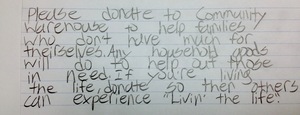 Please donate to Community
Warehouse to help families
who don't have much for
theirselves. Any household goods
will do to help out those
in need. If you're living
the life, donate so then others
can experience "Livin' the life".